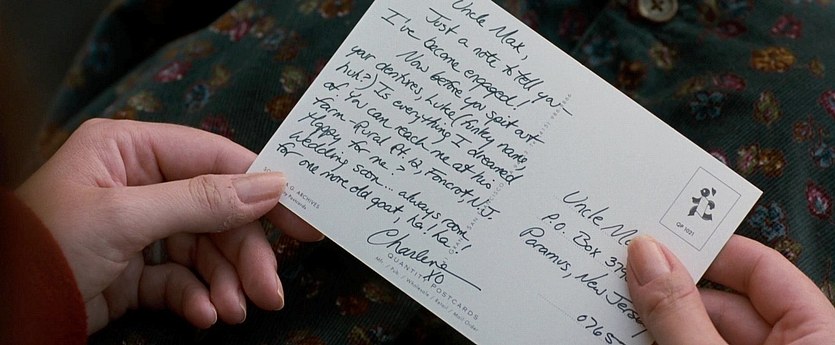 Uncle Max,
Just a note to tell you-
I've become engaged!
Now before you spit out
your dentures, Luke (funky name,
huh?) Is everything I dreamed
of. You can reach me at his
farm-Rural Rt. 12, Foncrot, N.J.
Happy for me?
Wedding soon... always room
for one more old goat, ha! ha!!
Charlene
XO
ARCHIVES
QUANTITY POSTCARDS
Wholesale / Retail / Mail Order
QP 1021
Uncle Max
P.O. Box 379
Paramus, New Jersey
0765